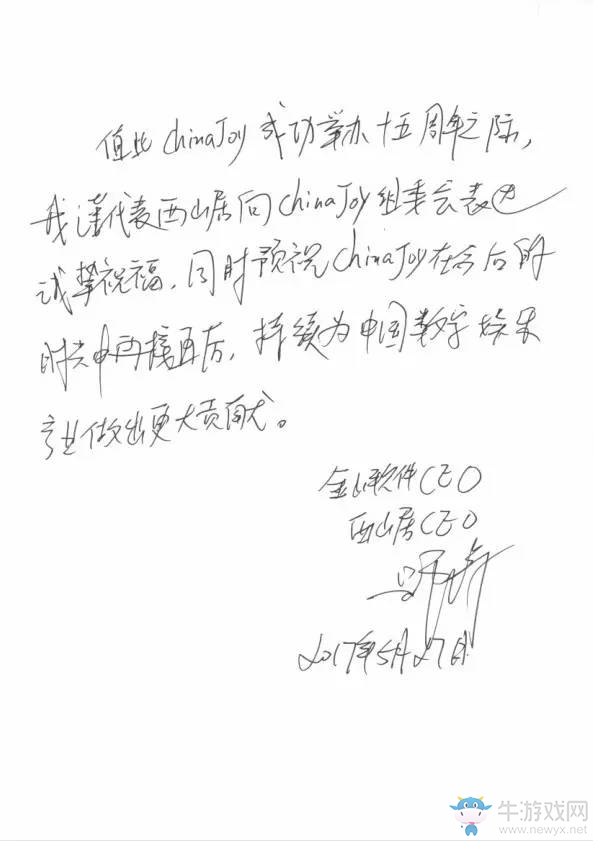 值此ChinaJoy成功举办十五周年之际，
我谨代表西山居向ChinaJoy组委会表达
诚挚祝福，同时预祝ChinaJoy在今后的
时光中再接再厉，持续为中国数字娱乐
产业做出更大贡献。
金山软件CEO
西山居CEO
2017年5月27日
牛游戏网
www.newyx.net